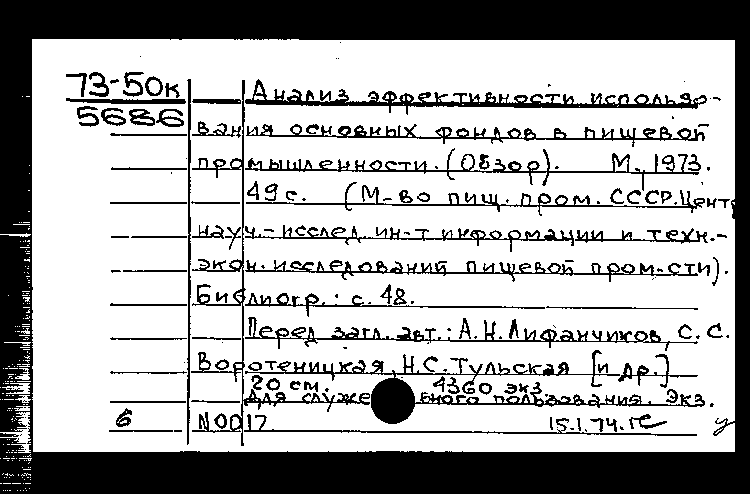 73-50к
5686
Анализ эффективности использо-
вания основных фондов в пищевой
промышленности. (Обзор). М., 1973.
49 с. (М-во пищ. пром. СССР. Центр
науч.-исслед. ин-т информации и техн.-
экон. исследований пищевой пром-сти).
Библиогр.: с. 48.
Перед загл. авт.: А.Н. Лифанчиков, С. С.
Воротеницкая, Н.С. Тульская [и др.]
20 см. 4360 экз
Для служебного пользования. Экз.
6 N0017 15.1.74.